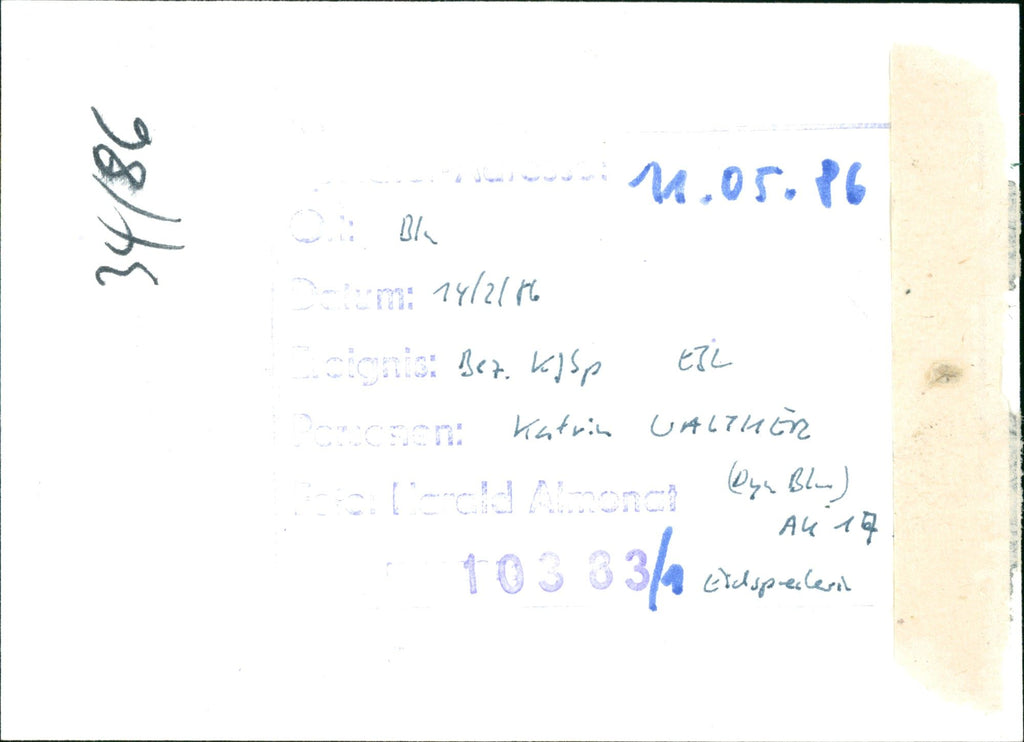 34/86
11.05.86
Ort: Bln
Datum: 14/2/86
Ereignis: Bez. KJSp EJL
Personen: Katrin WALTHER
(Dyn Bln)
AK 17
Foto: Harald Almonat
10363/1 Eidsprecherin